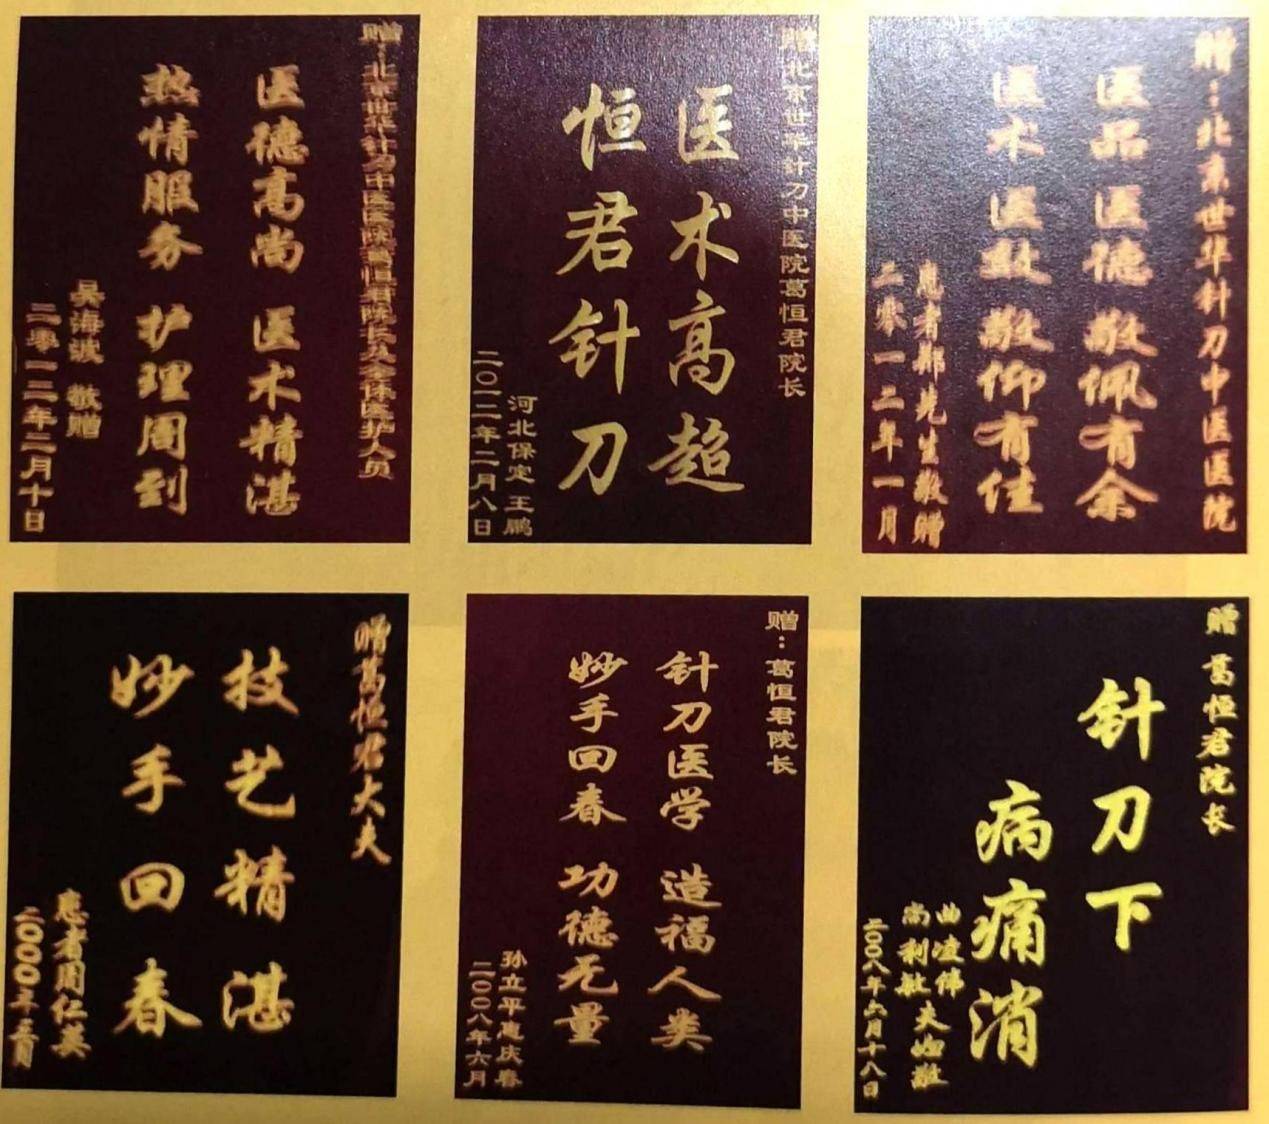 赠：北京世华针刀中医医院葛恒君院长及全体医护人员
医德高尚 医术精湛
热情服务 护理周到
吴海波 敬赠
二零一二年二月十日
赠北京世华针刀中医院葛恒君院长
医术高超
恒君针刀
河北保定 王鹏
二〇一二年二月八日
赠：北京世华针刀中医医院
医品医德 敬佩有余
医术医教 敬仰有佳
患者郑先生敬赠
二零一二年一月
赠葛恒君大夫
技艺精湛
妙手回春
患者周仁英
二000年三月
赠：葛恒君院长
针刀医学 造福人类
妙手回春 功德无量
孙立平惠庆春
二00八年六月
赠 葛恒君院长
针刀下
病痛消
曲凌伟
尚利敏 夫妇敬
二00八年六月十八日